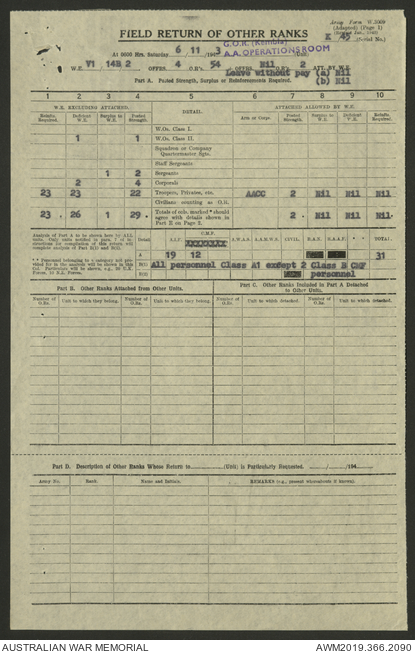 Army Form W.3009
(Adapted) (Page 1)
FIELD RETURN OF OTHER RANKS
K 45 (Serial No.)
At 0600 Hrs. Saturday 6 11 3
G.O.R. (Kembla)
A.A. OPERATIONS ROOM
W.E. VI 14B 2 OFFRS. 4 O.R's. 54 OFFRS. Nil O.R's. 2 ATT. BY W.E.
Leave without pay (a) Nil
(b) Nil
Part A. Posted Strength, Surplus or Reinforcements Required.
1 2 3 4 5 6 7 8 9 10
W.E. EXCLUDING ATTACHED. DETAIL. ATTACHED ALLOWED BY W.E.
Reinfts. Required. Deficient W.E. Surplus to W.E. Posted Strength. Arm or Corps. Posted Strength. Surplus to W.E. Deficient W.E. Reinfts. Required.
W.Os. Class I.
1 1 W.Os. Class II.
Squadron or Company Quartermaster Sgts.
Staff Sergeants
1 2 Sergeants
2 4 Corporals
23 23 22 Troopers, Privates, etc. AACC 2 Nil Nil Nil
Civilians counting as O.R.
23 26 1 29 Totals of cols. marked * should agree with details shown in Part B on Page 2. 2 Nil Nil Nil
Analysis of Part A to be shown here by ALL units.
Detail A.I.F. C.M.F. A.W.A.S. A.A.M.W.S. CIVIL. R.A.N. R.A.A.F. ** TOTAL.
A 19 12 31
B(i) All personnel Class A1 except 2 Class B CMF
B(ii) personnel
Part B. Other Ranks Attached from Other Units.
Part C. Other Ranks Included in Part A Detached to Other Units.
Number of O.Rs. Unit to which they belong. Number of O.Rs. Unit to which they belong. Number of O.Rs. Unit to which detached. Number of O.Rs. Unit to which detached.
Part D. Description of Other Ranks Whose Return to (Unit) is Particularly Requested. / /194
Army No. Rank. Name and Initials. REMARKS (e.g., present whereabouts if known).
AUSTRALIAN WAR MEMORIAL
AWM2019.366.2090